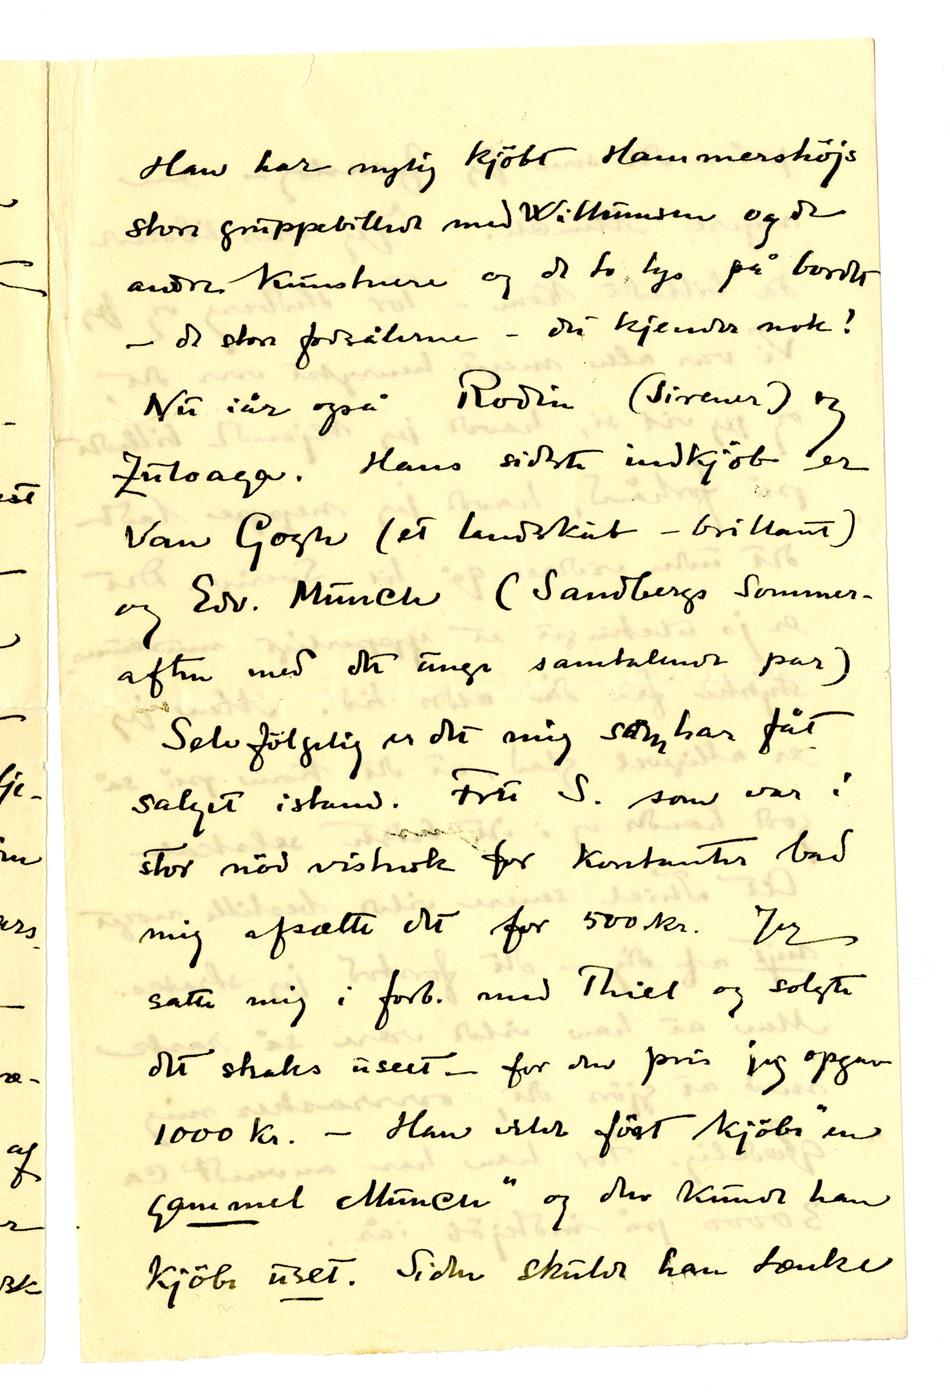 Han har nylig kjöbt Hammershöjs
store gruppebillede med Willumsen og de
andre kunstnere og de to lys på bordet
– de store fodsålerne – du kjender nok!
Nu iår også Rodin (Sirener) og
Zuloaga. Hans sidste indkjöb er
Van Gogh (et landskab – brillant)
og Edv. Munch (Sandbergs Sommer-
aften med det unge samtalende par)
Selvfölgelig er det mig som har fåt
salget istand. Fru S. som var i
stor nöd vistnok for kontanter bad
mig afsætte det for 500 kr. Jeg
satte mig i forb. med Thiel og solgte
det straks useet – for den pris jeg opgav
1000 kr. – Han vilde först kjöbe "en
gammel Munch" og den kunde han
kjöbe uset. Siden skulde han tænke
est
fje-
om
ers
af
er